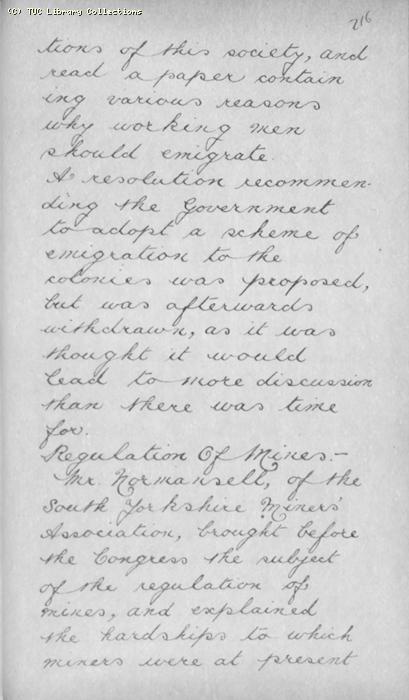 (C) TUC Library Collections
216
tions of this society, and
read a paper contain
ing various reasons
why working men
should emigrate.
A resolution recommen-
ding the Government
to adopt a scheme of
emigration to the
colonies was proposed,
but was afterwards
withdrawn, as it was
thought it would
lead to more discussion
than there was time
for.
Regulation Of Mines.-
Mr. Normansell, of the
South Yorkshire Miners'
Association, brought before
the Congress the subject
of the regulation of
mines, and explained
the hardships to which
miners were at present